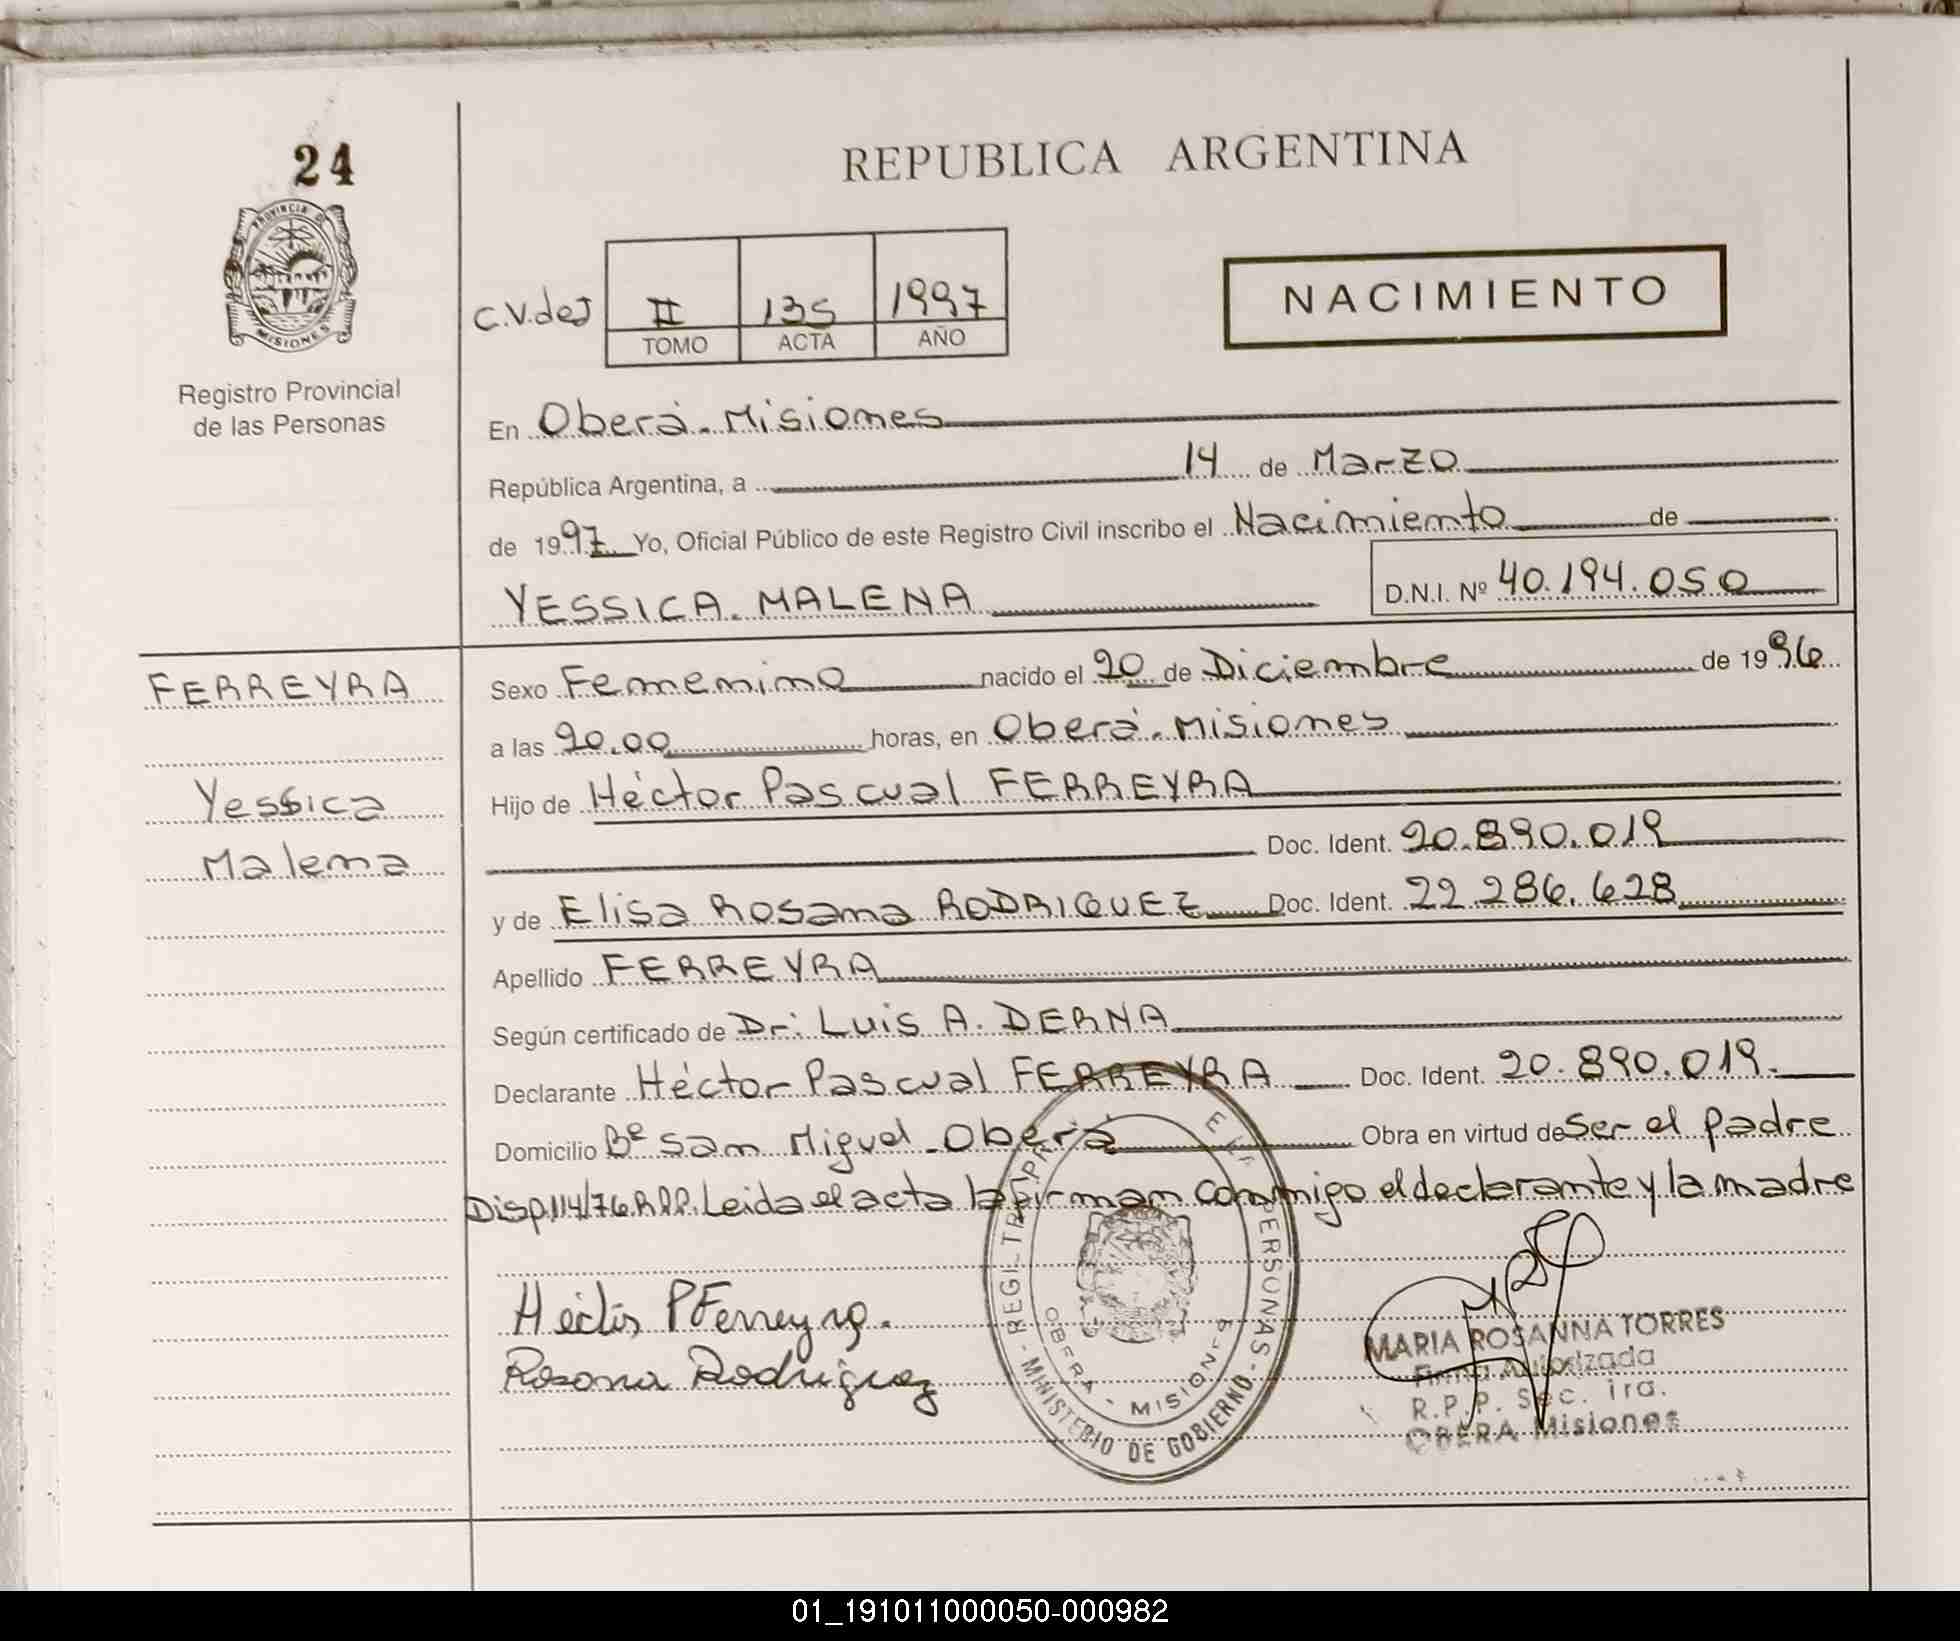 24
REPUBLICA ARGENTINA
PROVINCIA D
MISIONES
Registro Provincial
de las Personas
C.V.deJ II 135 1997
TOMO ACTA AÑO
NACIMIENTO
En Oberá. Misiones
República Argentina, a 14 de Marzo
de 1997 Yo, Oficial Público de este Registro Civil inscribo el Nacimiento de
YESSICA. MALENA D.N.I. Nº 40.194.050
FERREYRA
Yessica
Malena
Sexo Femenino nacido el 20 de Diciembre de 1996
a las 20.00 horas, en Oberá. Misiones
Hijo de Héctor Pascual FERREYRA
Doc. Ident. 20.890.019
y de Elisa Rosana RODRIGUEZ Doc. Ident. 22.286.628
Apellido FERREYRA
Según certificado de Dr: Luis A. DERNA
Declarante Héctor Pascual FERREYRA Doc. Ident. 20.890.019.
Domicilio Bº San Miguel - Oberá Obra en virtud de ser el padre
Disp.114/76.R.P.P. Leida el acta la firman conmigo el declarante y la madre
Héctor P Ferreyra.
Rosana Rodriguez
MINISTERIO DE GOBIERNO
OBERA - MISIONES
MARIA ROSANNA TORRES
Firma Autorizada
R.P.P. Sec. 1ra.
OBERA Misiones
01_191011000050-000982